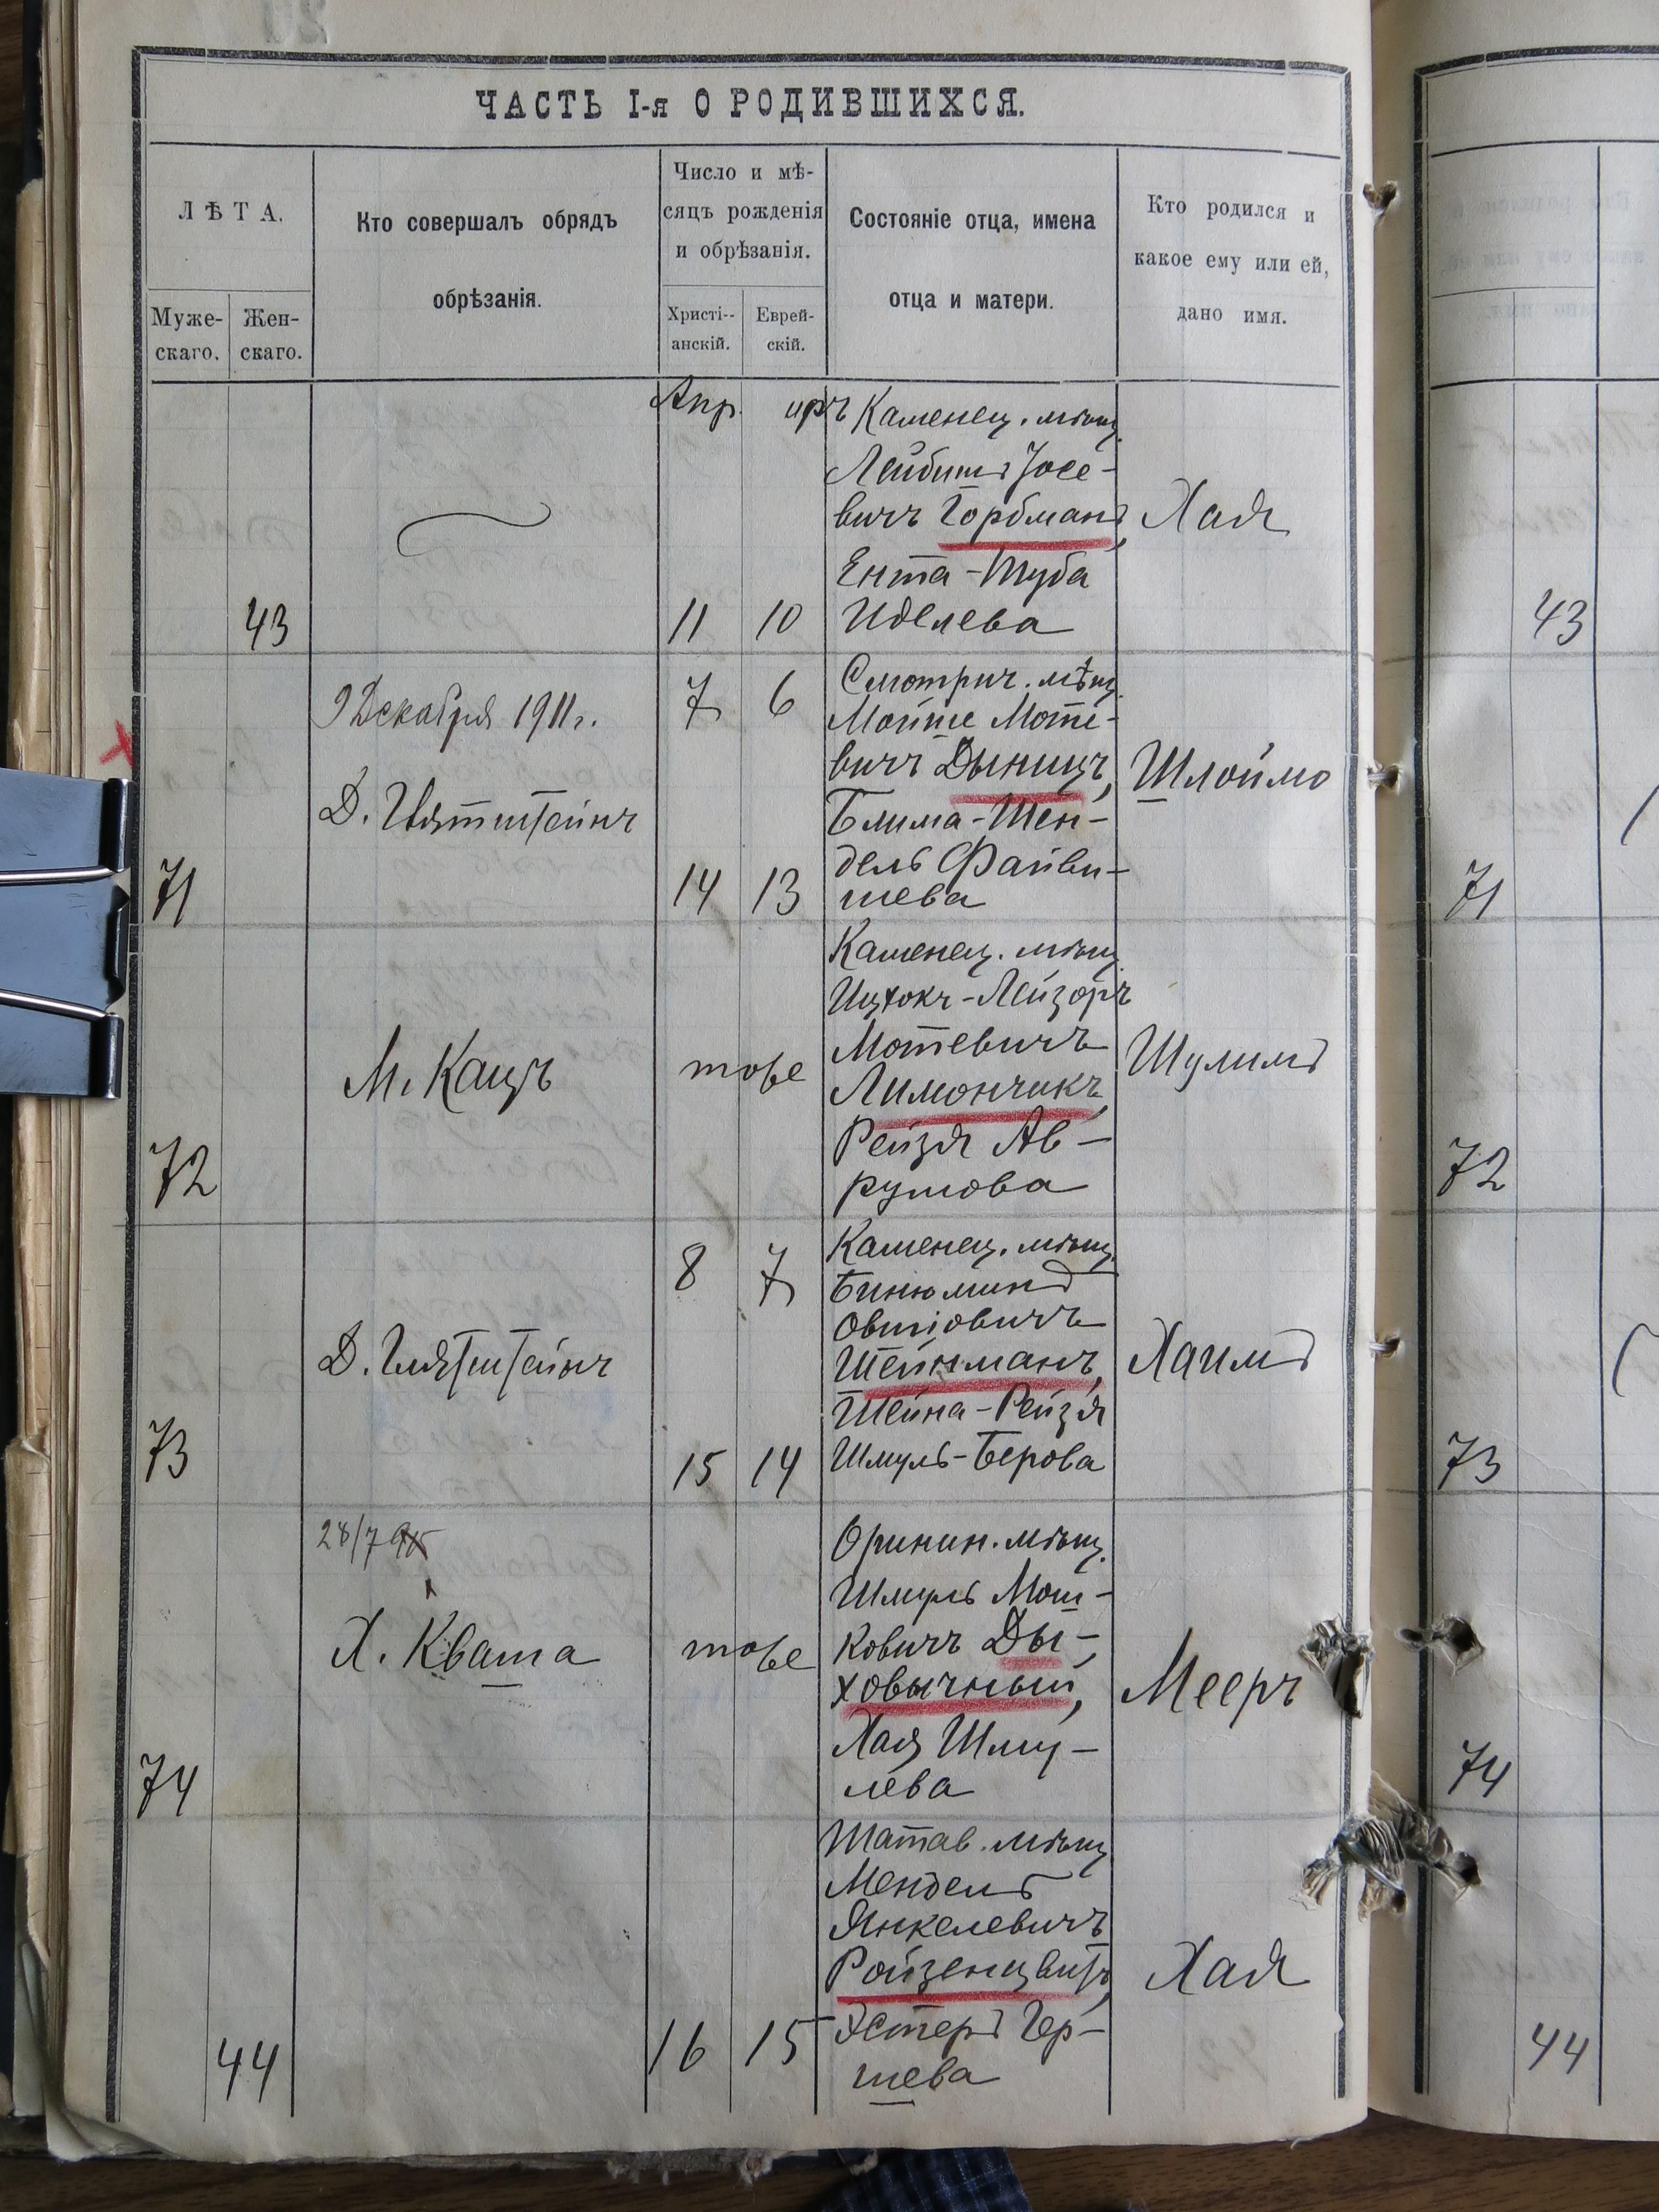 ЧАСТЬ I-я О РОДИВШИХСЯ.
ЛѢТА.
Муже-
скаго.
Жен-
скаго.
Кто совершалъ обрядъ
обрѣзанія.
Число и мѣ-
сяцъ рожденія
и обрѣзанія.
Христі--
анскій.
Еврей-
скій.
Состояніе отца, имена
отца и матери.
Кто родился и
какое ему или ей,
дано имя.
43
Апр.
11
10
Каменец. мѣщ.
Лейбишъ Іосе-
вичъ Горбманъ,
Ента-Туба
Иделева
Хая
43
71
9 Декабря 1911 г.
7
6
14
13
Смотрич. мѣщ.
Мойше Моте-
вичъ Дыницъ,
Блима-Шен-
дель Файви-
шева
Шлоймо
71
72
М. Кацъ
тоже
Каменец. мѣщ.
Ицхокъ-Лейзоръ
Мотевичъ
Лимончикъ,
Рейзя Ав-
румова
Шулимъ
72
73
Д. Глятштейнъ
8
7
15
14
Каменец. мѣщ.
Бинюминъ
Овшіовичъ
Шейнманъ,
Шейна-Рейзя
Шмуль-Берова
Хаимъ
73
74
28/7
Х. Квата
тоже
Оринин. мѣщ.
Шмуль Мош-
ковичъ Ды-
ховычный,
Хая Шму-
лева
Мееръ
74
44
16
15
Шатав. мѣщ.
Мендель
Янкелевичъ
Ройзенцвитъ,
Эстеръ Гер-
шева
Хая
44